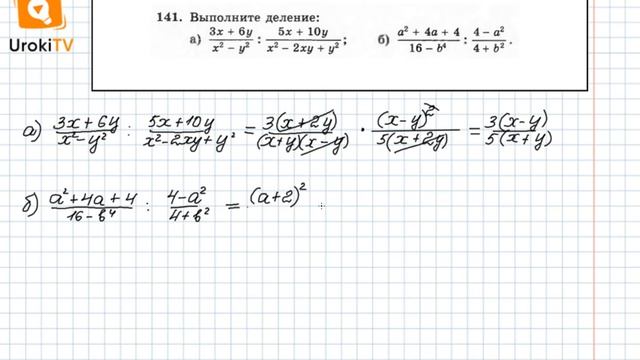 141. Выполните деление:
а) (3x + 6y)/(x² − y²) : (5x + 10y)/(x² − 2xy + y²); б) (a² + 4a + 4)/(16 − b⁴) : (4 − a²)/(4 + b²).
UrokiTV
а) (3x + 6y)/(x² − y²) : (5x + 10y)/(x² − 2xy + y²) = 3(x + 2y)/((x + y)(x − y)) · (x − y)²/(5(x + 2y)) = 3(x − y)/(5(x + y))
б) (a² + 4a + 4)/(16 − b⁴) : (4 − a²)/(4 + b²) = (a + 2)²